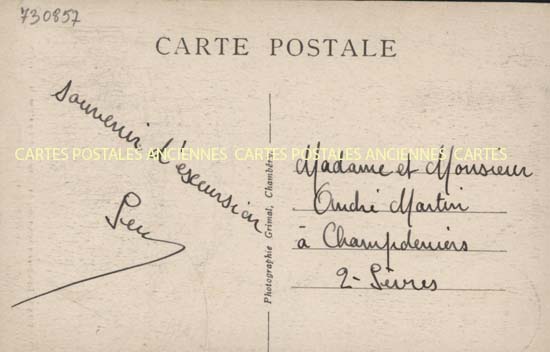 730857
CARTE POSTALE
Souvenir d'excursion
CARTES POSTALES ANCIENNES CARTES POSTALES ANCIENNES CARTES
Photographie Grimal, Chambéry
Madame et Monsieur
André Martin
à Champdeniers
2-Sèvres